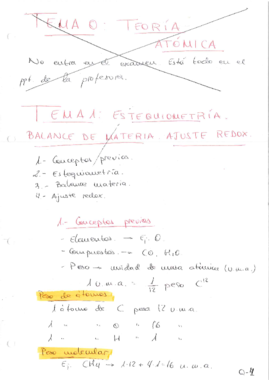 TEMA 0: TEORÍA
ATÓMICA.
No entra en el examen. Está todo en el
ppt de la profesora.
TEMA 1: ESTEQUIOMETRÍA.
BALANCE DE MATERIA AJUSTE REDOX
1- Conceptos previos
2- Estequiometría.
3- Balance materia.
4- Ajuste redox.
1- Conceptos previos
- Elementos → Ej. O.
- Compuestos → CO, H2O
- Peso → unidad de masa atómica (u.m.a.)
1 u.m.a. = 1/12 peso C12
Peso de átomos:
1 átomo de C pesa 12 u.m.a
1 " " O " 16 "
1 " " H " 1 "
Peso molecular:
Ej CH4 → 1·12 + 4·1 = 16 u.m.a.